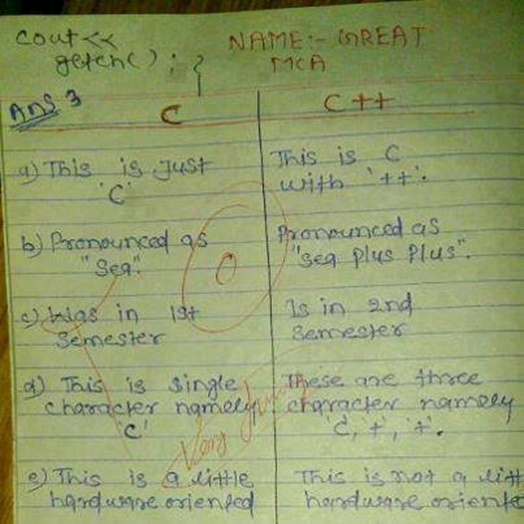 cout<<
getch(); }
NAME:- GREAT
MCA
Ans 3
C
C++
a) This is Just
'C'
This is C
with '++'.
b) Pronounced as
"Sea".
Pronounced as
"Sea Plus Plus".
0
c) Was in 1st
Semester
Is in 2nd
Semester
d) This is Single
character namely
'C'
These are three
character namely
'C', '+', '+'.
Very
e) This is a little
hardware oriented
This is not a litt
hardware oriented